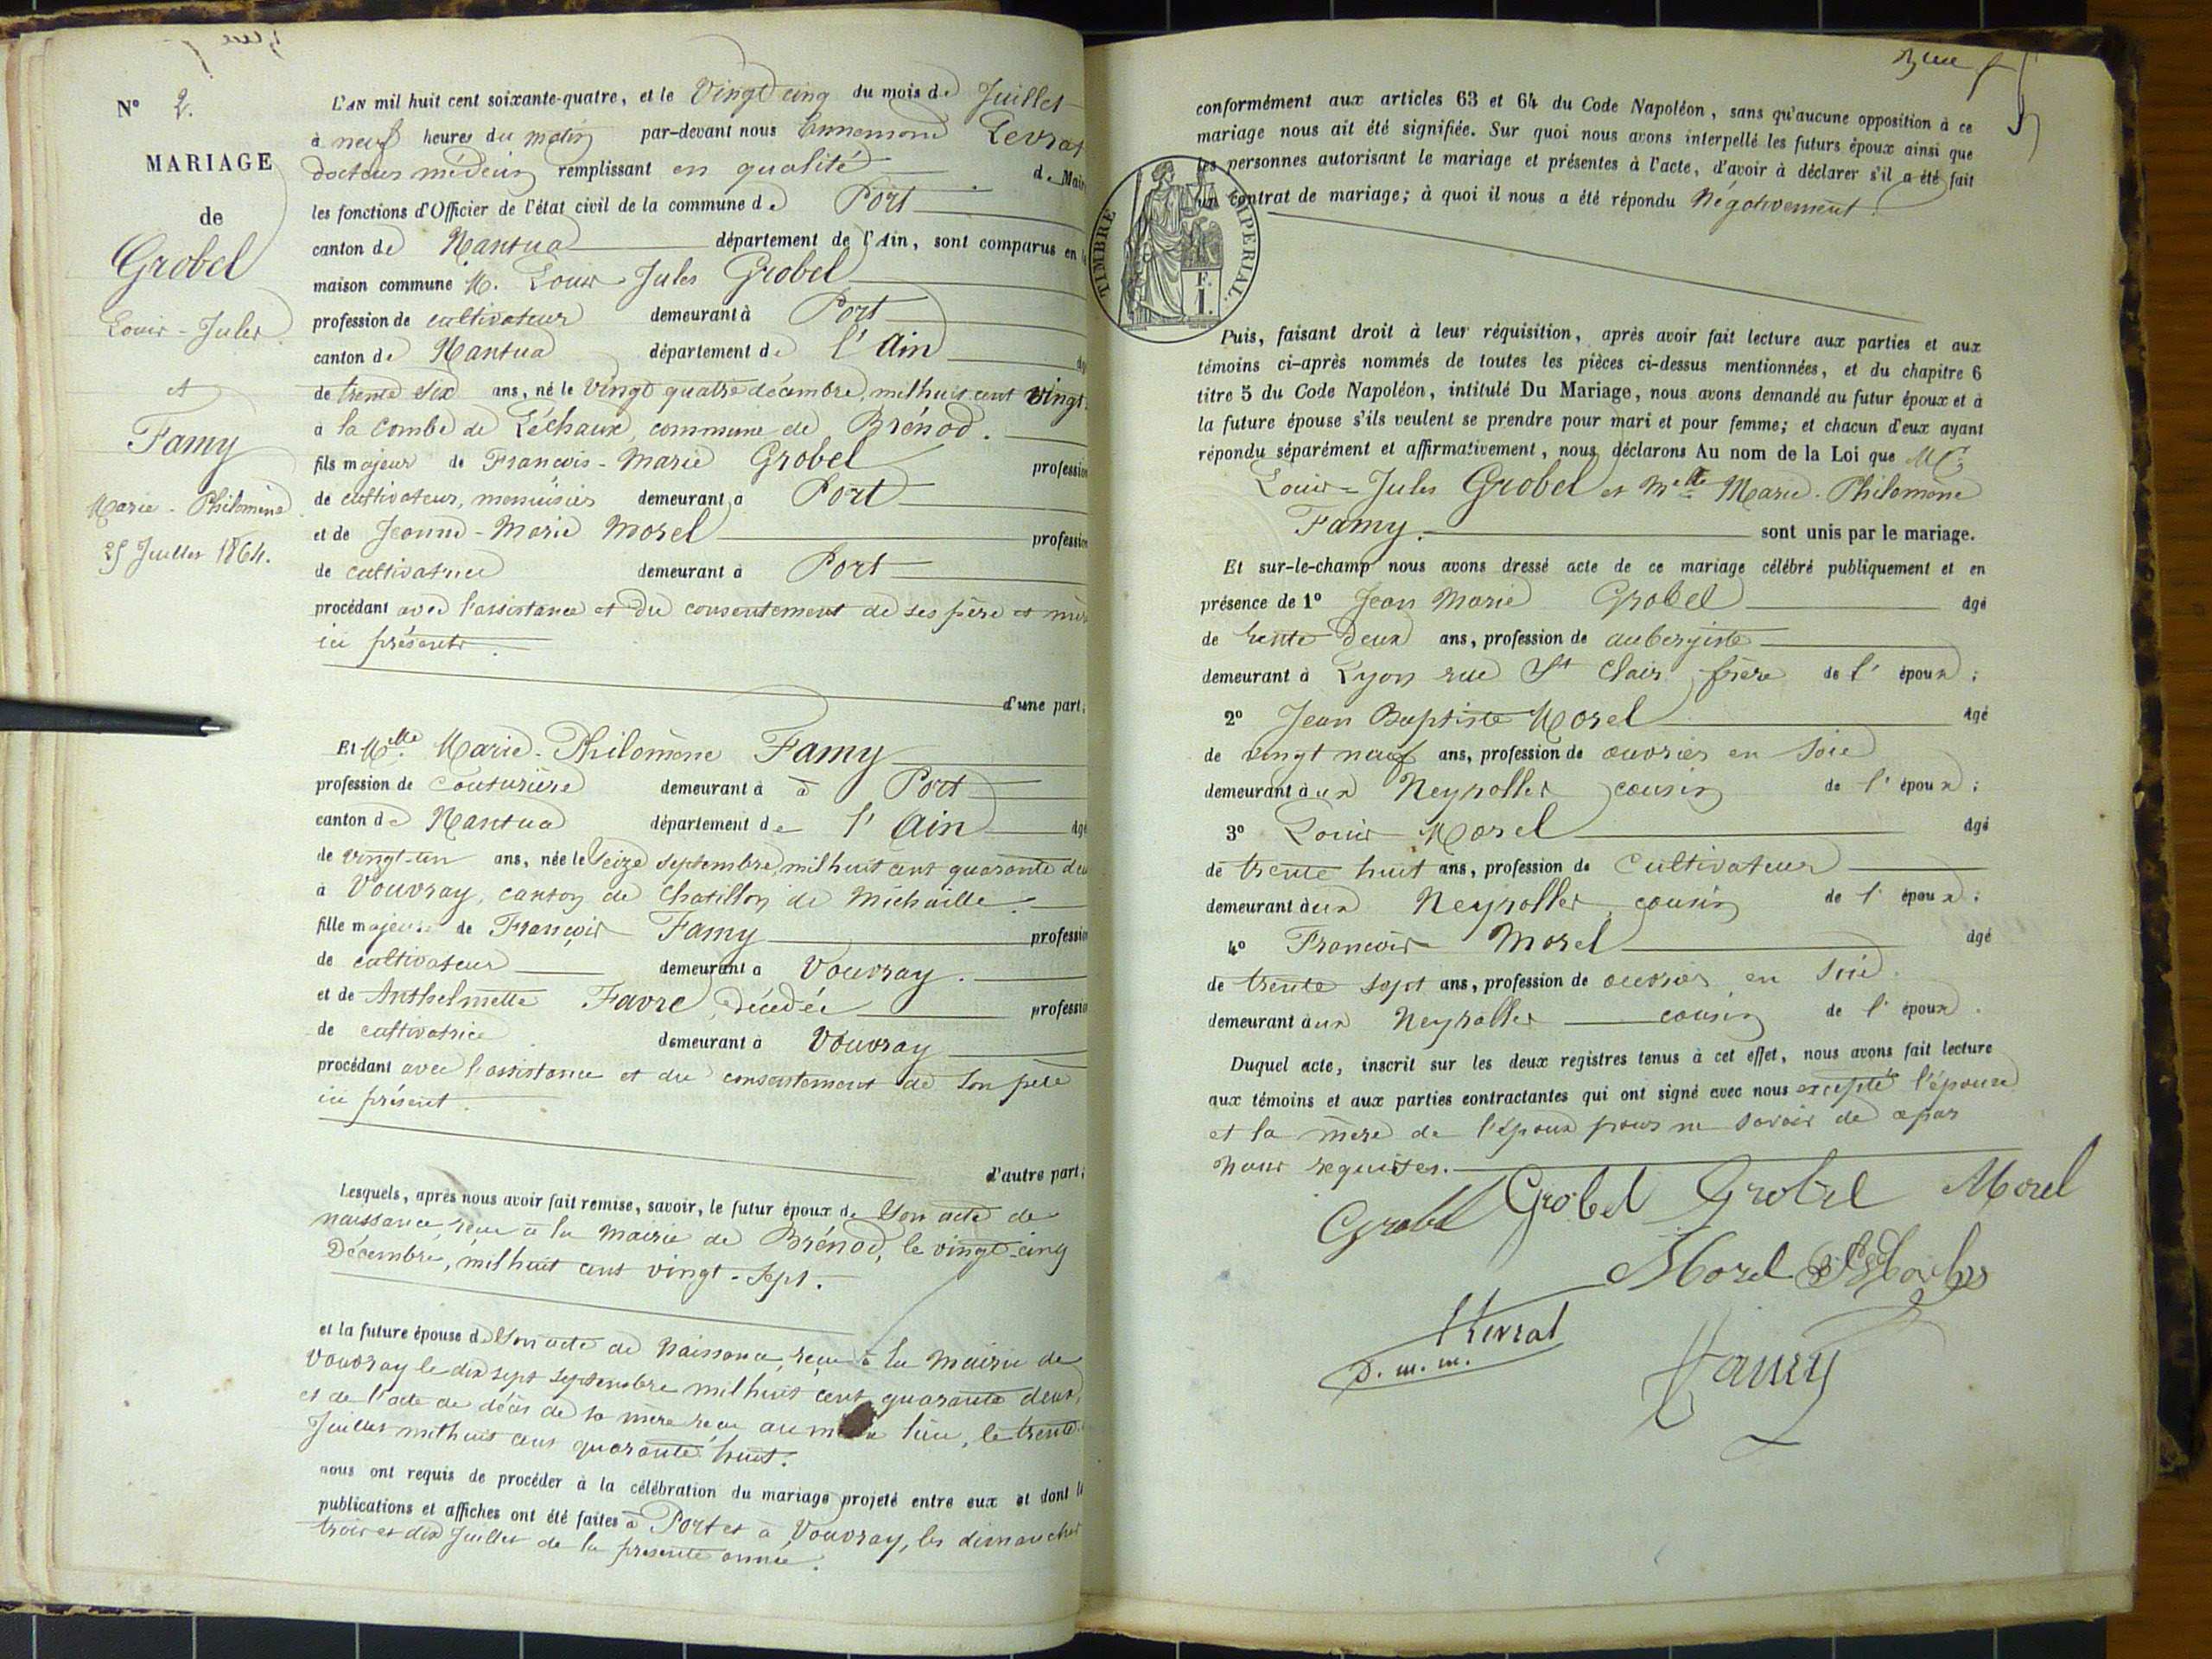 N° 2.
MARIAGE
de
Grobel
Louis-Jules
et
Famy
Marie-Philomène
25 Juillet 1864.
L'AN mil huit cent soixante-quatre, et le Vingt cinq du mois de Juillet
à neuf heures du matin par-devant nous Ennemond Levrat
docteur médecin remplissant en qualité de Maire
les fonctions d'Officier de l'état civil de la commune de Port
canton de Nantua département de l'Ain, sont comparus en
maison commune M. Louis-Jules Grobel
profession de cultivateur demeurant à Port
canton de Nantua département de l'Ain
de trente six ans, né le Vingt quatre décembre, mil huit cent vingt
à la Combe de Léchaux, commune de Brénod.
fils majeur de François-Marie Grobel profession
de cultivateur, menuisier demeurant à Port
et de Jeanne-Marie Morel profession
de cultivatrice demeurant à Port
procédant avec l'assistance et du consentement de ses père et mère
ici présents.
d'une part;
Et Melle Marie-Philomène Famy
profession de Couturière demeurant à à Port
canton de Nantua département de l'Ain âgé
de vingt-un ans, née le Seize septembre, mil huit cent quarante deux
à Vouvray, canton de Chatillon de Michaille.
fille majeure de François Famy profession
de cultivateur demeurant à Vouvray.
et de Anthelmette Favre, décédée profession
de cultivatrice demeurant à Vouvray
procédant avec l'assistance et du consentement de son père
ici présent.
d'autre part;
Lesquels, après nous avoir fait remise, savoir, le futur époux de Son acte de
naissance, reçu à la mairie de Brénod, le vingt-cinq
Décembre, mil huit cent vingt-sept.
et la future épouse de Son acte de Naissance, reçu à la Mairie de
Vouvray le dix sept Septembre mil huit cent quarante deux,
et de l'acte de décès de sa mère reçu au même lieu, le trente
Juillet mil huit cent quarante huit.
nous ont requis de procéder à la célébration du mariage projeté entre eux et dont
publications et affiches ont été faites à Port et à Vouvray, les dimanches
trois et dix Juillet de la présente année.
conformément aux articles 63 et 64 du Code Napoléon, sans qu'aucune opposition à ce
mariage nous ait été signifiée. Sur quoi nous avons interpellé les futurs époux ainsi que
les personnes autorisant le mariage et présentes à l'acte, d'avoir à déclarer s'il a été fait
un contrat de mariage; à quoi il nous a été répondu Négativement.
TIMBRE IMPERIAL.
F.
1.
Puis, faisant droit à leur réquisition, après avoir fait lecture aux parties et aux
témoins ci-après nommés de toutes les pièces ci-dessus mentionnées, et du chapitre 6
titre 5 du Code Napoléon, intitulé Du Mariage, nous avons demandé au futur époux et à
la future épouse s'ils veulent se prendre pour mari et pour femme; et chacun d'eux ayant
répondu séparément et affirmativement, nous déclarons Au nom de la Loi que M.
Louis-Jules Grobel et Melle Marie-Philomène
Famy. sont unis par le mariage.
Et sur-le-champ nous avons dressé acte de ce mariage célébré publiquement et en
présence de 1° Jean Marie Grobel âgé
de trente deux ans, profession de aubergiste
demeurant à Lyon rue St Clair frère de l'époux;
2° Jean Baptiste Morel âgé
de vingt neuf ans, profession de ouvrier en soie
demeurant aux Neyrolles cousin de l'époux;
3° Louis Morel âgé
de trente huit ans, profession de Cultivateur
demeurant aux Neyrolles, cousin de l'époux;
4° François Morel âgé
de trente sept ans, profession de ouvrier en Soie.
demeurant aux Neyrolles cousin de l'époux.
Duquel acte, inscrit sur les deux registres tenus à cet effet, nous avons fait lecture
aux témoins et aux parties contractantes qui ont signé avec nous excepté l'épouse
et la mère de l'époux pour ne savoir de après
nous requises.
Grobel Grobel Grobel Morel
Morel
Levrat
D. m. m.
Famy